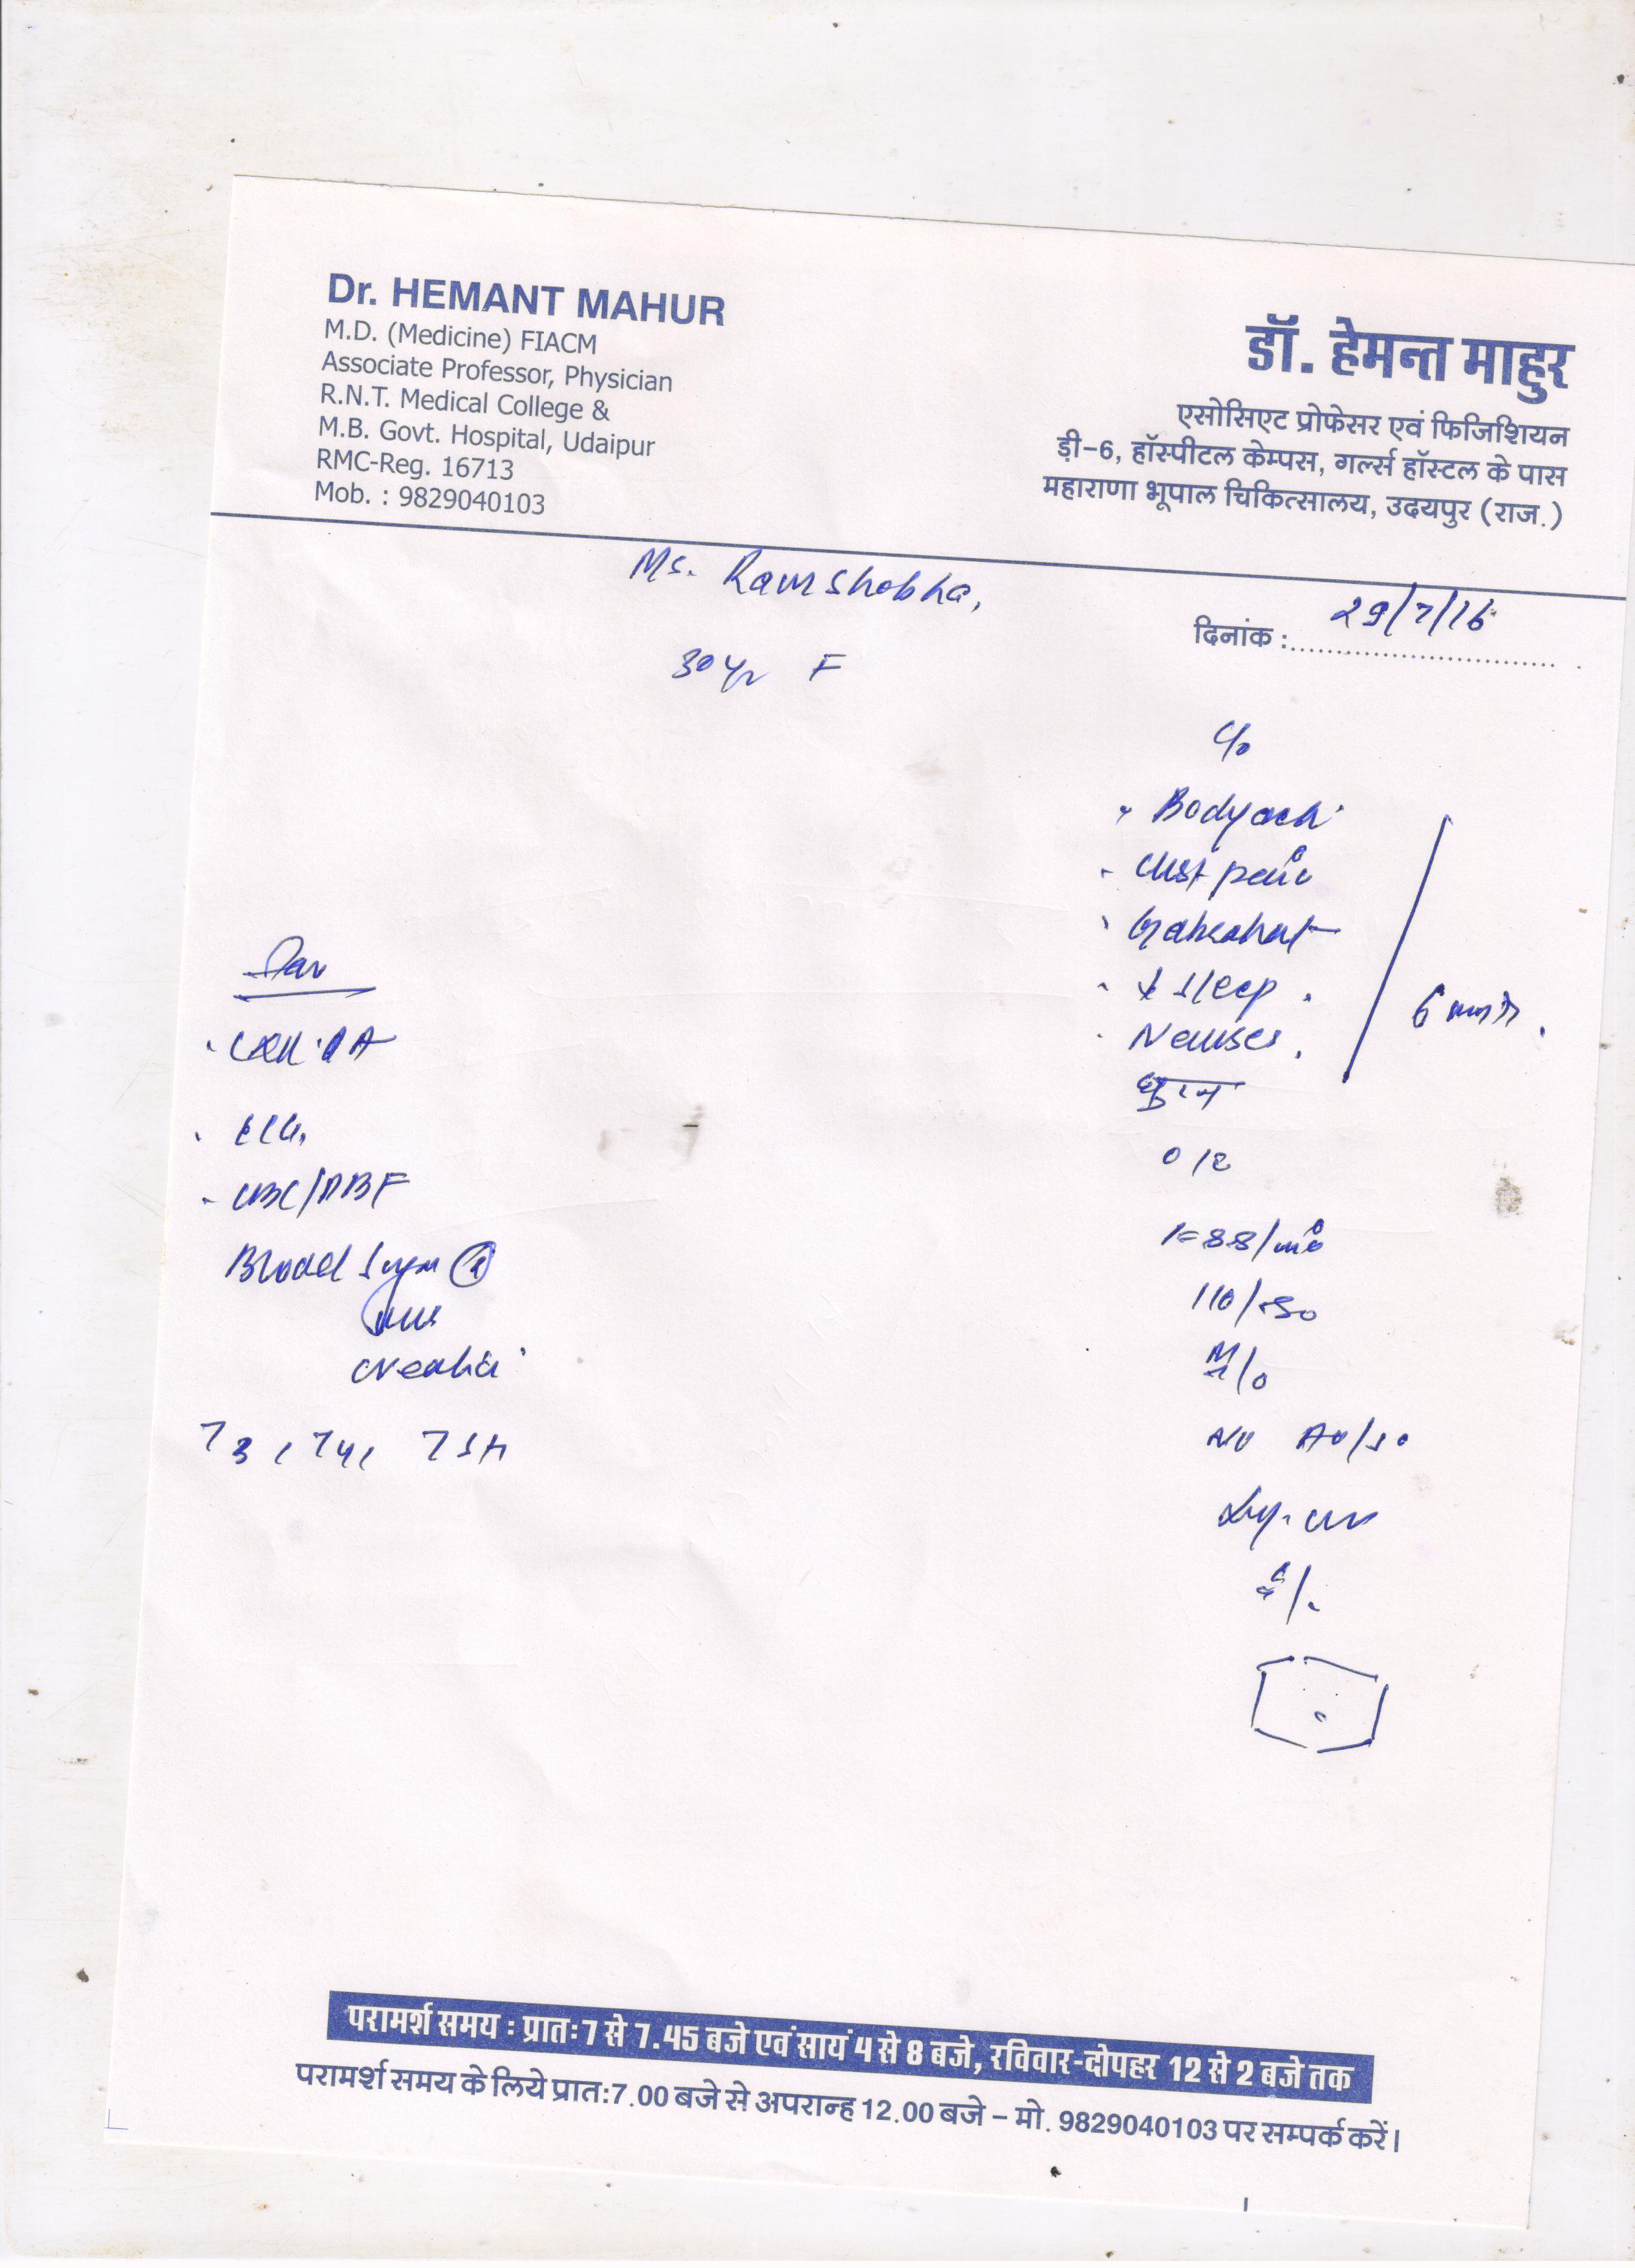 Dr. HEMANT MAHUR
M.D. (Medicine) FIACM
Associate Professor, Physician
R.N.T. Medical College &
M.B. Govt. Hospital, Udaipur
RMC-Reg. 16713
Mob. : 9829040103
डॉ. हेमन्त माहुर
एसोसिएट प्रोफेसर एवं फिजिशियन
ड़ी-6, हॉस्पीटल केम्पस, गर्ल्स हॉस्टल के पास
महाराणा भूपाल चिकित्सालय, उदयपुर (राज.)
Ms. Ramshobha,
दिनांक : 29/7/16
30 yr F
C/o
Bodyach
Chest pain
Gabrahat
↓ sleep
Nausea
6 month
O/E
P=88/min
110/80
ECG
CBC/PBF
Blood Sugar R
Urea
Creatini
T3, T4, TSH
परामर्श समय : प्रातः 7 से 7.45 बजे एवं सायं 4 से 8 बजे, रविवार-दोपहर 12 से 2 बजे तक
परामर्श समय के लिये प्रात:7.00 बजे से अपरान्ह 12.00 बजे – मो. 9829040103 पर सम्पर्क करें।